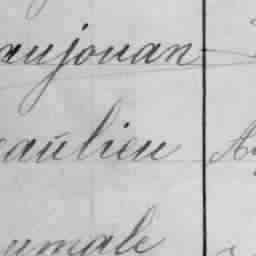 aujouan
aulieu A
umale